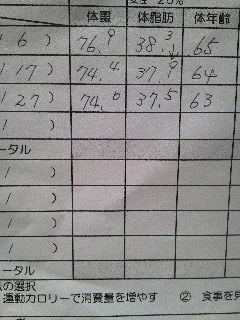 体重 体脂肪 体年齢
6 ) 76.9 38.3 65
17 ) 74.4 37.9 64
27 ) 74.6 37.5 63
)
ータル
/ )
/ )
/ )
/ )
ータル
の選択
運動カロリーで消費量を増やす ② 食事を見